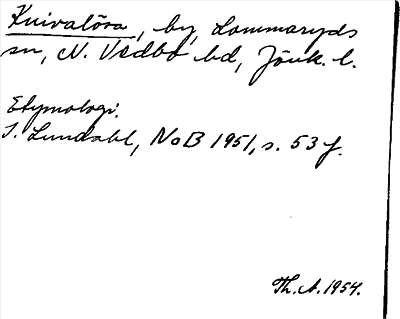 Knivalösa, by, Lommaryds
sn, N. Vedbo hd, Jönk. l.
Etymologi.
I. Lundahl, NoB 1951, s. 53 f.
Th. A. 1954.